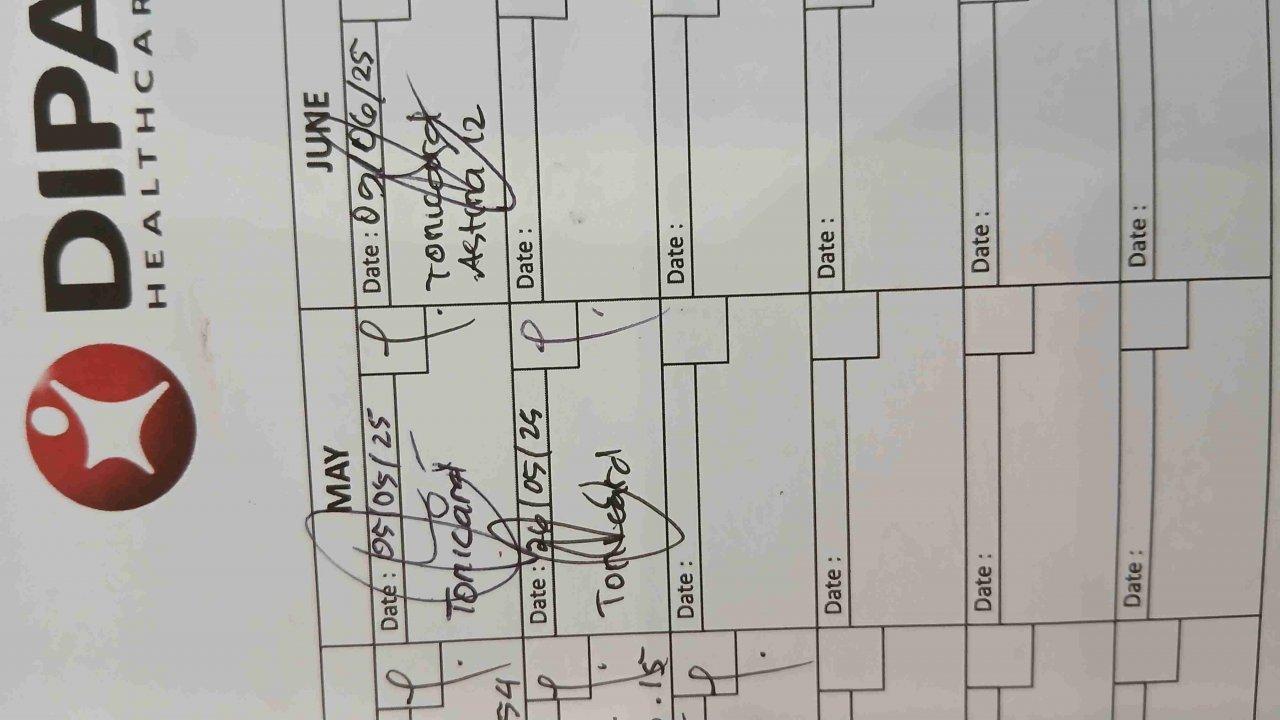 DIPA
HEALTHCAR
MAY
JUNE
Date : 05/05/25
Tonicard
Date : 26/05/25
Tonicard
Date :
Date :
Date :
Date :
Date : 09/06/25
Tonicard
12
Date :
Date :
Date :
Date :
Date :
54
.15